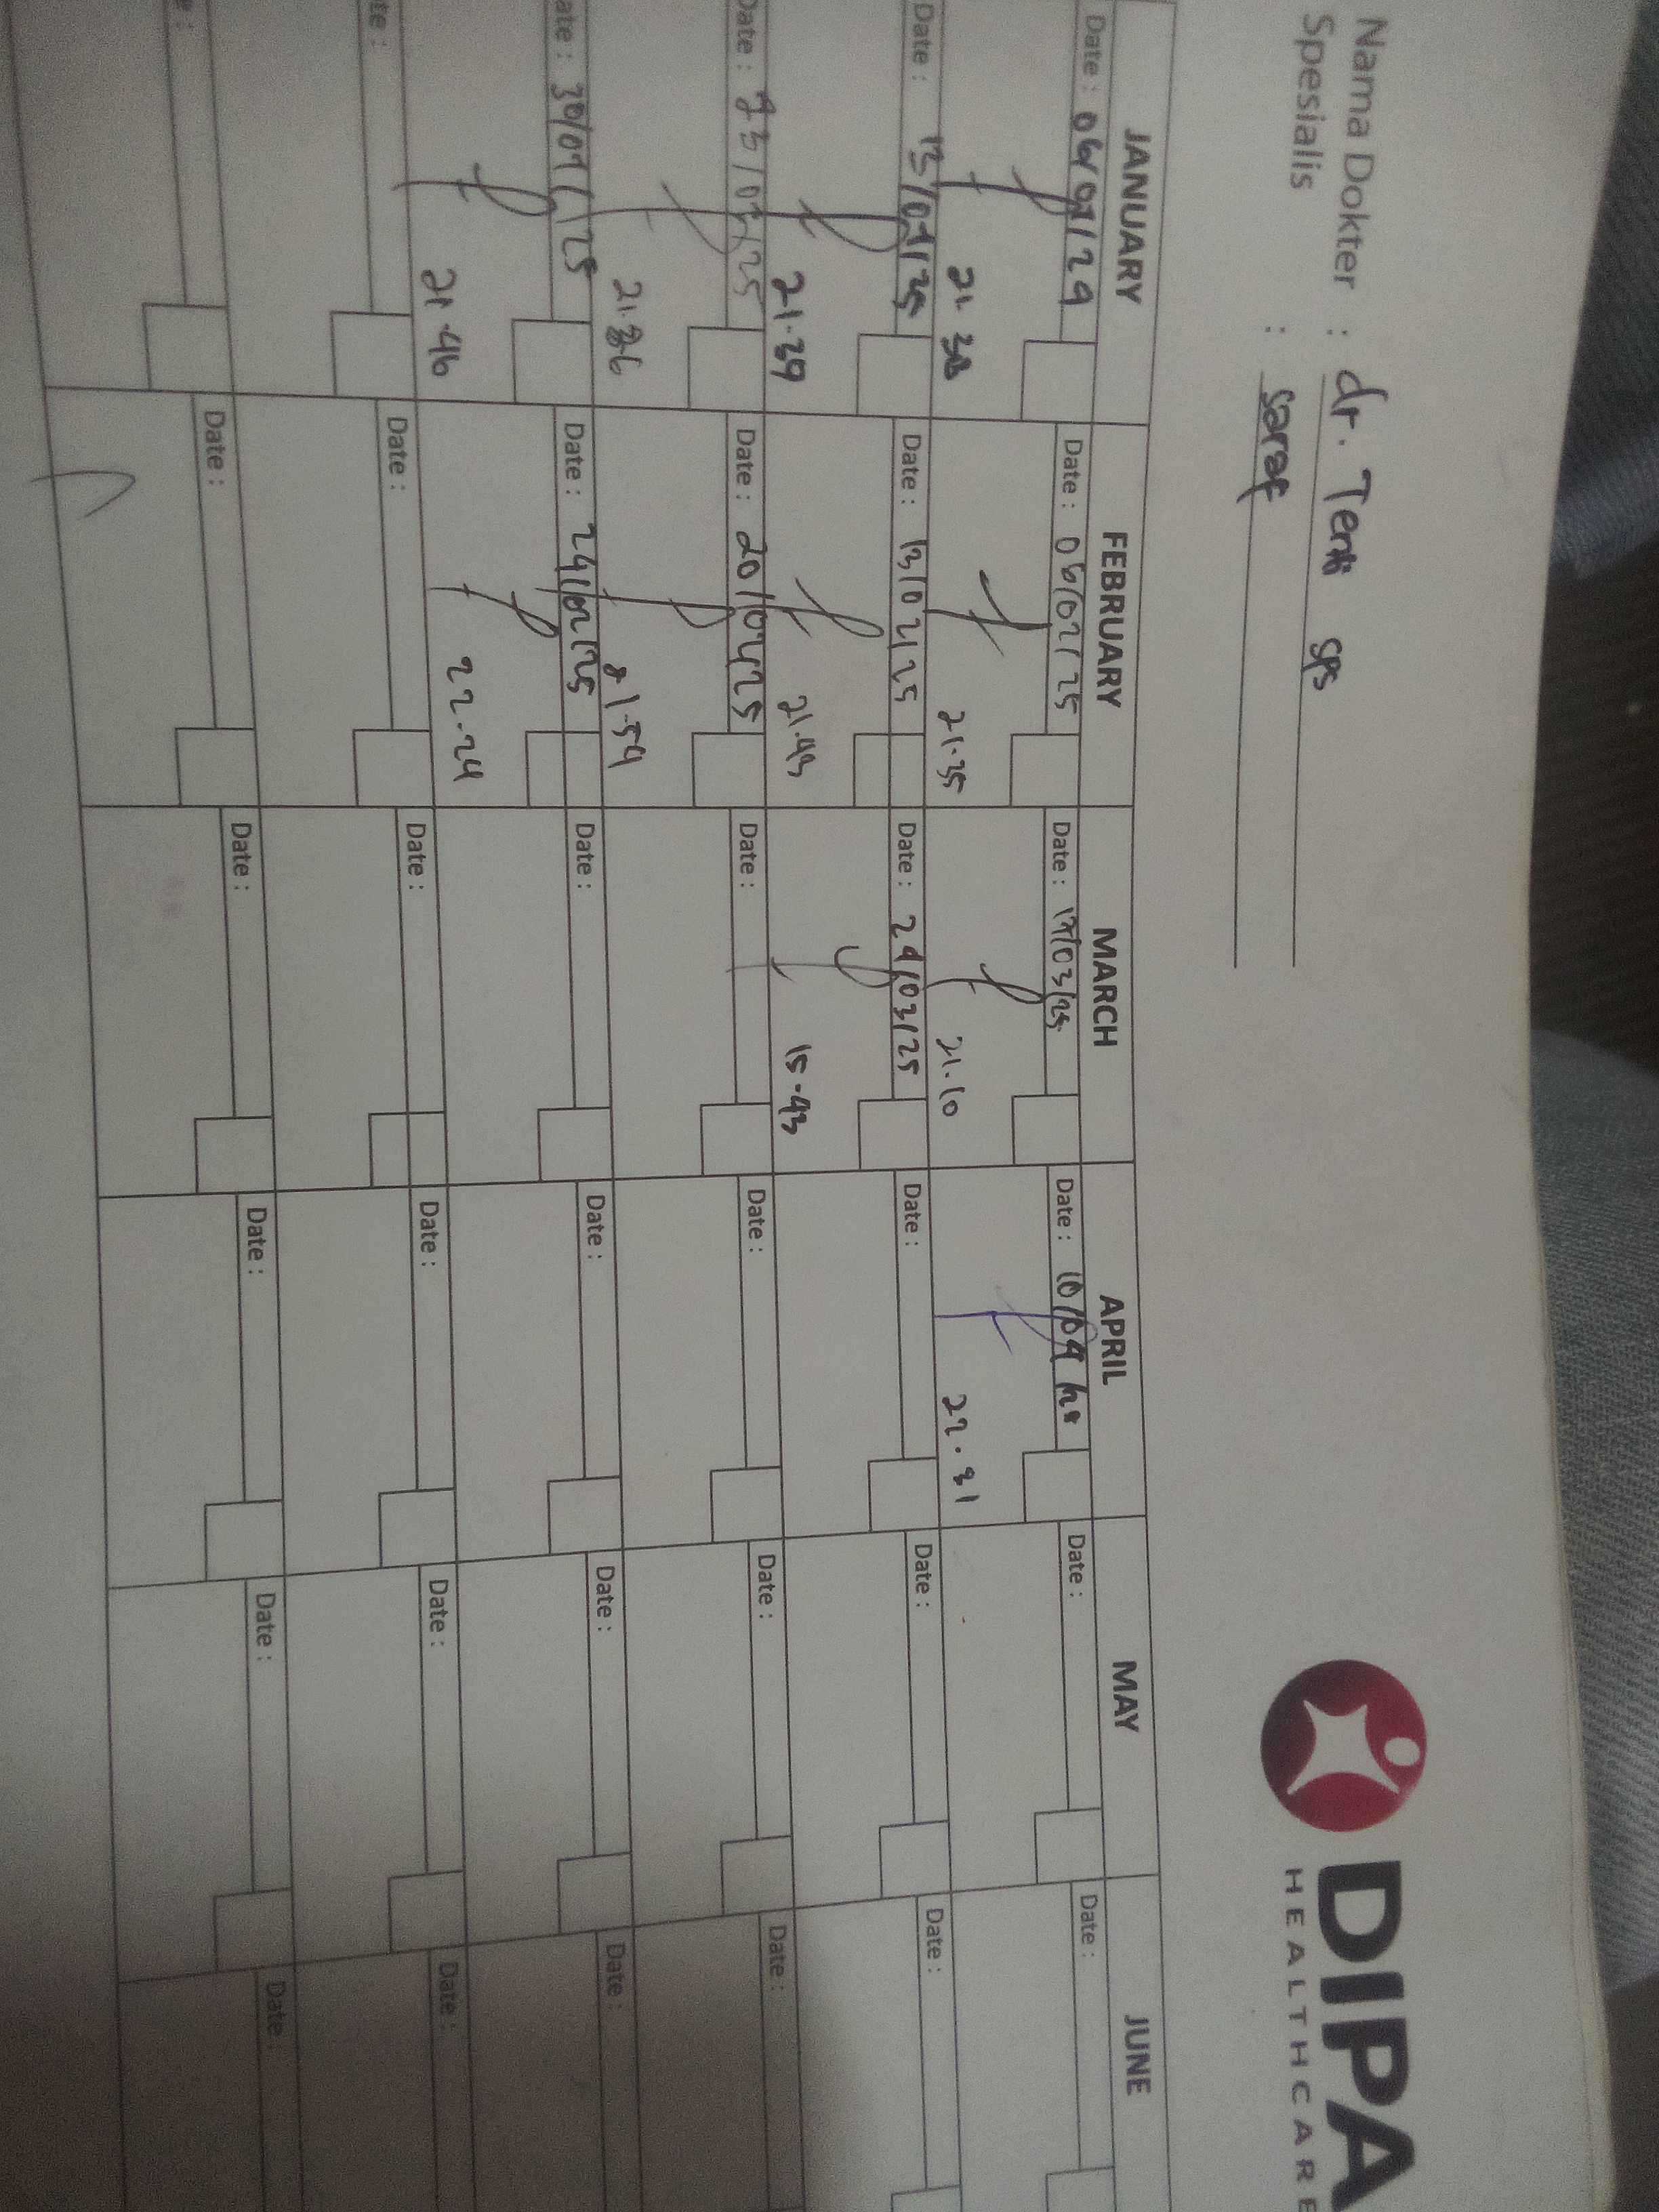 Nama Dokter : dr. Tenti sps
Spesialis : saraf
DIPA
HEALTHCARE
JANUARY FEBRUARY MARCH APRIL MAY JUNE
Date : 06/01/24 Date : 06/02/25 Date : 13/03/25 Date : 10/04/25 Date : Date :
21.38 21.35 21.10 22.31
Date : 13/01/25 Date : 13/02/25 Date : 24/03/25 Date : Date : Date :
21.39 21.43 15.43
Date : 23/01/25 Date : 20/02/25 Date : Date : Date : Date :
21.36 21.54
ate : 30/01/25 Date : 24/02/25 Date : Date : Date : Date :
21.46 22.24
te : Date : Date : Date : Date : Date :
e : Date : Date : Date : Date : Date :